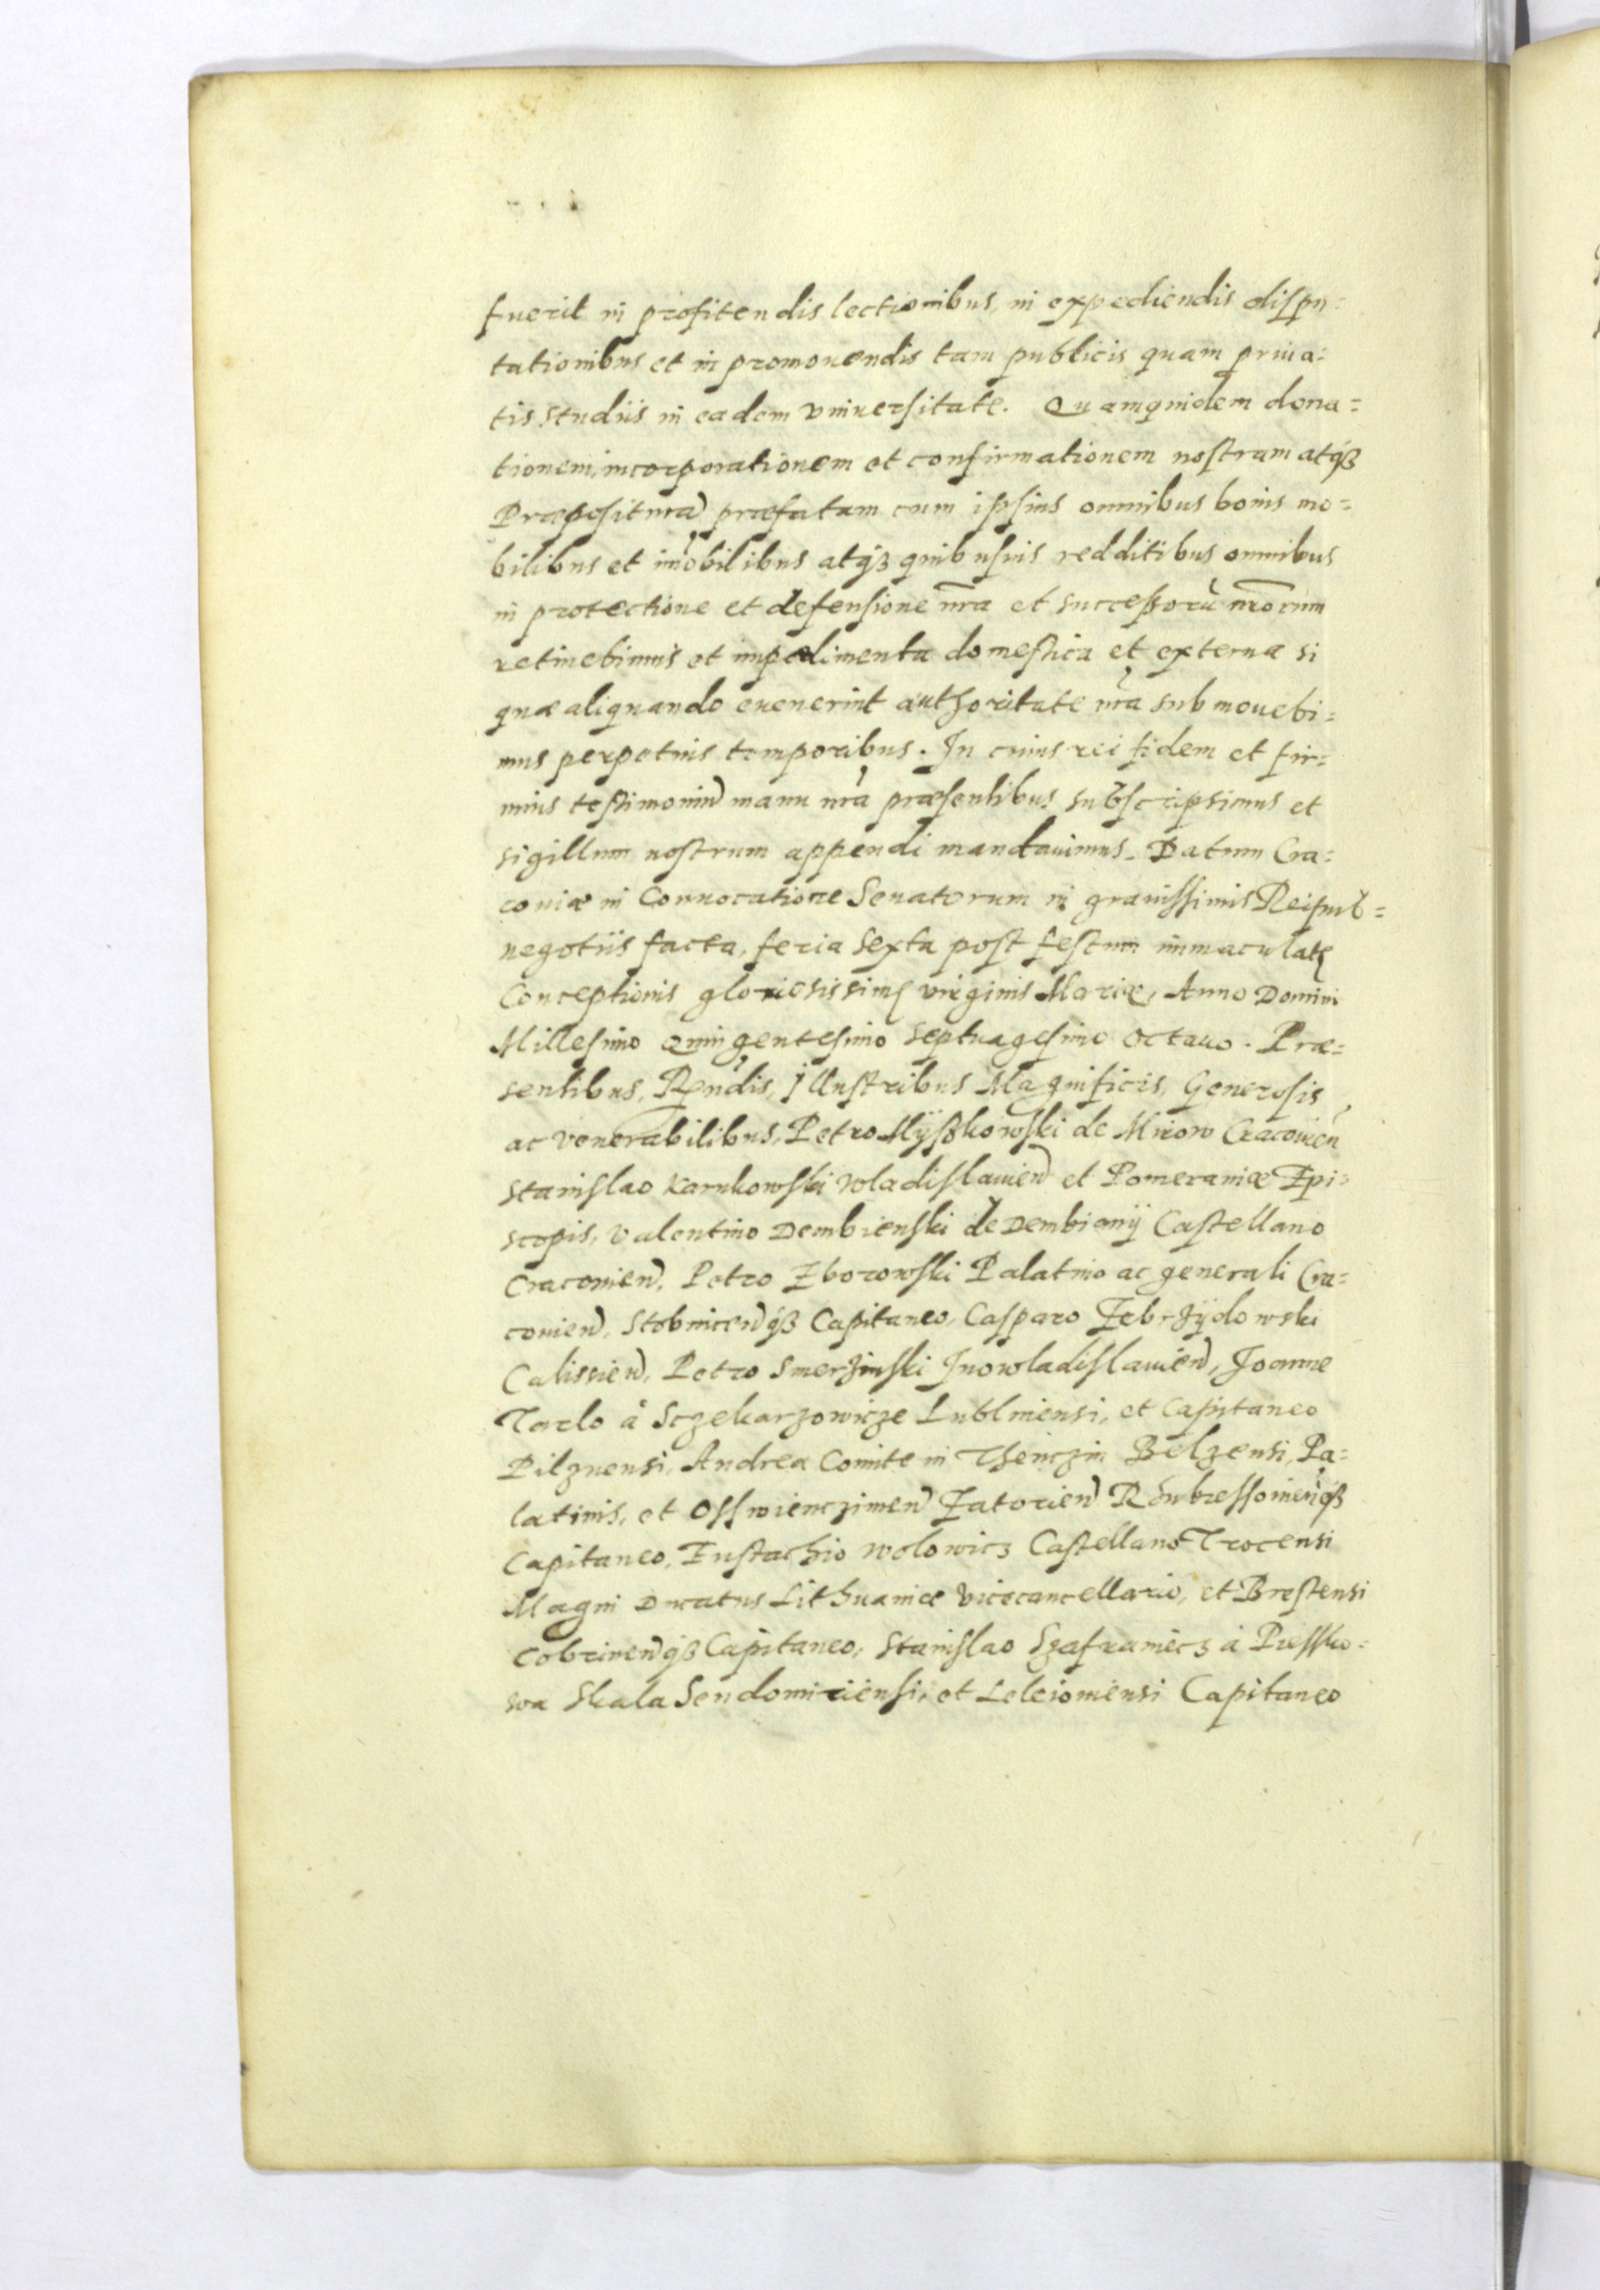 fuerit in profitendis lectionibus, in expediendis dispu=
tationibus et in promouendis tam publicis quam priua=
tis studiis in eadem vniuersitate. Quamquidem dona=
tionem, incorporationem et confirmationem nostram atqȝ
Præposituram̃ præfatam cum ipsius omnibus bonis mo=
bilibus et im̃obilibus atqȝ quibusuis redditibus omnibus
in protectione et defensione nr̃a et successorũ nr̃orum
retinebimus et impedimenta domestica et externa si
quæ aliquando euenerint authoritate nr̃a submouebi=
mus perpetuis temporibus. In cuius rei fidem et fir=
mius testimoniũ manu nr̃a præsentibus subscripsimus et
sigillum nostrum appendi mandauimus. Datum Cra=
couiæ in Conuocatione Senatorum in grauissimis Reipub=
negotiis facta, feria sexta post festum immaculatę
Conceptionis gloriosissimę virginis Mariæ, Anno Domini
Millesimo Quingentesimo septuagesimo octauo. Præ=
sentibus, Rẽndis, Illustribus Magnificis, Generosis
ac venerabilibus, Petro Myßkowski de Mirow Cracouieñ
Stanislao Karnkowski Wladislauieñ et Pomeraniæ Epi=
scopis, Valentino Dembienski de Dembianij Castellano
Cracouieñ, Petro Zborowski Palatino ac generali Cra=
couieñ, Stobniceñqȝ Capitaneo, Casparo Zebrzydowski
Calissieñ, Petro Smerzinski Inowladislauieñ, Joanne
Tarlo à Sczekarzowicze Lublinensi, et Capitaneo
Pilznensi, Andrea Comite in Thenczin Belzensi, Pa=
latinis, et Osswienczimeñ Zatorieñ Capitaneo, Eustachio Wolowicz Castellano Trocensi
Magni Ducatus Lithuaniæ Vicecancellario, et Brestensi
Cobrineñqȝ Capitaneo, Stanislao Szafraniecz à Piessko=
wa Skala Sendomiriensi, et Leleiouiensi Capitaneo